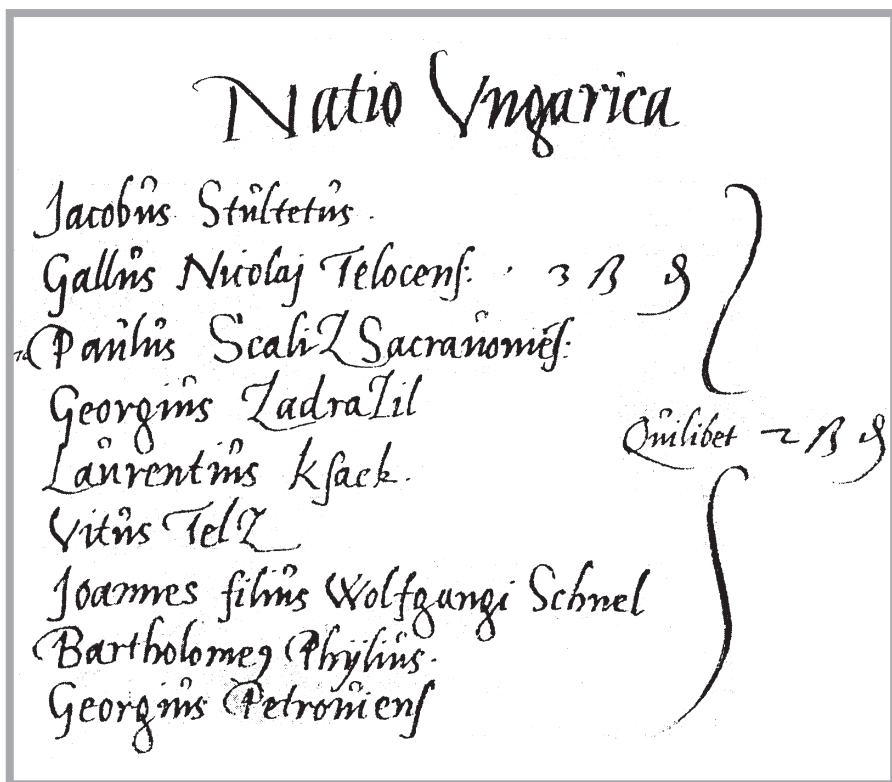 Natio Vngarica
Jacobus Stultetus.
Gallus Nicolaj Telocens: 3 ß ₰
Paulus ScaliZ Sacrauomẽs:
Georgius ZadraZil
Laurentius Ksack.
Vitus TelZ
Quilibet 2 ß ₰
Joannes filius Wolfgangi Schnel
Bartholomeꝰ Phÿlius.
Georgius Petrouiens